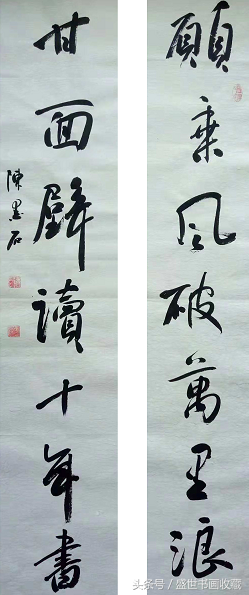 願乘风破萬里浪
甘面壁讀十年書
陳墨石
头条号/盛世书画收藏